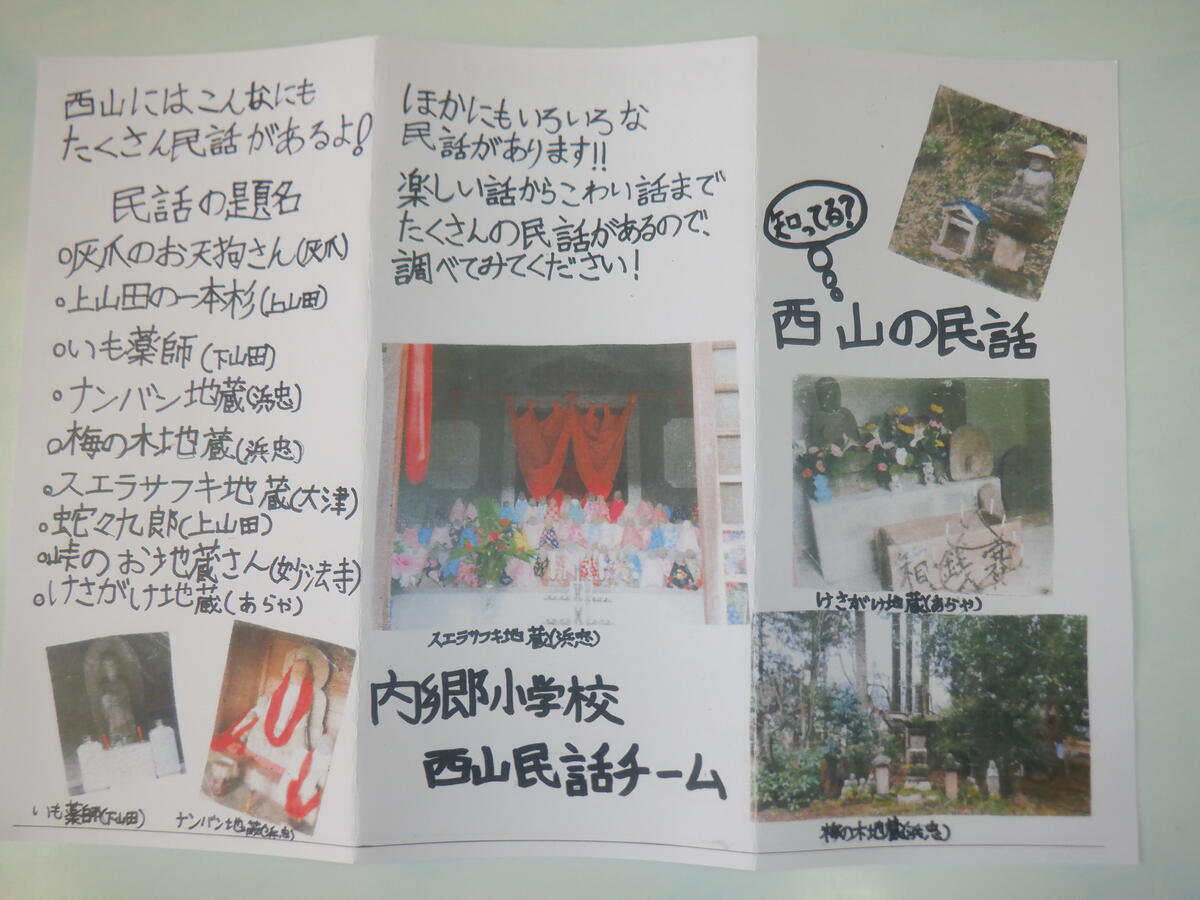 西山にはこんなにも
たくさん民話があるよ!
民話の題名
灰爪のお天狗さん(灰爪)
上山田の一本杉(上山田)
いも薬師(下山田)
ナンバン地蔵(浜忠)
梅の木地蔵(浜忠)
スエラサフキ地蔵(大津)
蛇々九郎(上山田)
峠のお地蔵さん(妙法寺)
けさがけ地蔵(あらや)
いも薬師(下山田)
ナンバン地蔵(浜忠)
ほかにもいろいろな
民話があります!!
楽しい話からこわい話まで
たくさんの民話があるので、
調べてみてください!
スエラサフキ地蔵(浜忠)
内郷小学校
西山民話チーム
知ってる?
西山の民話
けさがけ地蔵(あらや)
梅の木地蔵(浜忠)